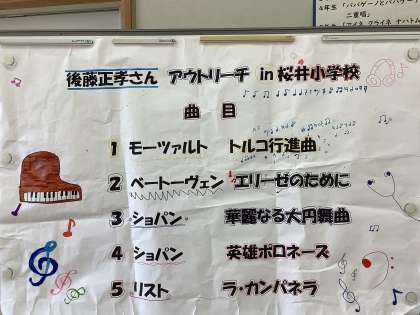 4年生「パパゲーノとパパゲーナの
二重唱」
後藤正孝さん アウトリーチ in 桜井小学校
曲目
1 モーツァルト トルコ行進曲
2 ベートーヴェン エリーゼのために
3 ショパン 華麗なる大円舞曲
4 ショパン 英雄ポロネーズ
5 リスト ラ・カンパネラ